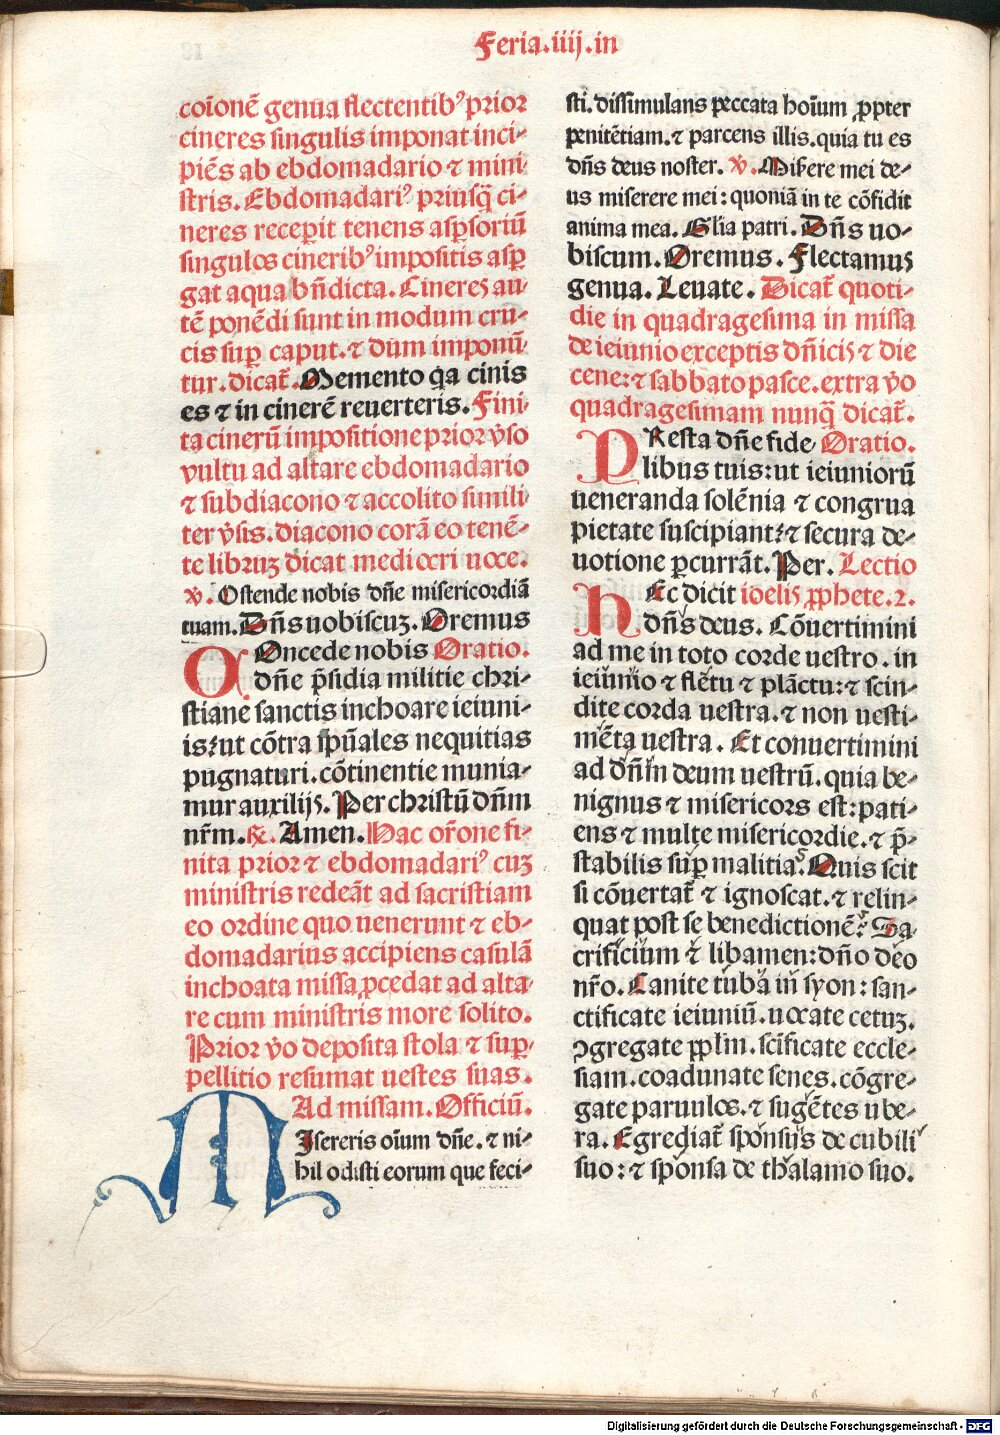 Feria.iiij.in
coi͞onē genua flectentibꝰ prior
cineres singulis imponat inci-
piēs ab ebdomadario ⁊ mini
stris. Ebdomadariꝰ priusq̄ ci-
neres receperit tenens asp̱soriū
singulos cineribꝰ impositis asp̱
gat aqua bn̄dicta. Cineres au-
tē ponēdi sunt in modum cru-
cis sup̱ caput. ⁊ dum imponū
tur. dicat᷑. Memento q̓a cinis
es ⁊ in cinerē reuerteris. Fini-
ta cinerū impositione prior v̓so
vultu ad altare ebdomadario
⁊ subdiacono ⁊ accolito simili
ter v̓sis. diacono corā eo tenē-
te libruꝫ dicat mediocri uoce.
℣. Ostende nobis dn̄e misericordiā
tuam. Dn̄s uobiscuꝫ. Oremus
COncede nobis Oratio.
dn̄e p̄sidia militie chri-
stiane sanctis inchoare ieiuni-
is: ut cōtra spūales nequitias
pugnaturi. cōtinentie munia-
mur auxilijs. Per christū dn̄m
nr̄m. ℟. Amen. Hac or̄one fi-
nita prior ⁊ ebdomadariꝰ cuꝫ
ministris redeāt ad sacristiam
eo ordine quo uenerunt ⁊ eb-
domadarius accipiens casulā
inchoata missa ꝓcedat ad alta-
re cum ministris more solito.
Prior v̓o deposita stola ⁊ sup̱-
pellitio resumat uestes suas.
Ad missam. Officiū.
MIsereris oīum dn̄e. ⁊ ni-
hil odisti eorum que feci-
sti. dissimulans peccata hoīum ꝓpter
penitētiam. ⁊ parcens illis. quia tu es
dn̄s deus noster. ℣. Mis̄ere mei de-
us miserere mei: quoniā in te cōfidit
anima mea. Gl̄ia patri. Dn̄s uo-
biscum. Oremus. Flectamus
genua. Leuate. Dicat᷑ quoti-
die in quadragesima in missa
de ieiunio exceptis dn̄icis ⁊ die
cene: ⁊ sabbato pasce. extra v̓o
quadragesimam nunq̄ dicat᷑.
PResta dn̄e fide Oratio.
libus tuis: ut ieiuniorū
ueneranda solēnia ⁊ congrua
pietate suscipiant: ⁊ secura de-
uotione p̱currāt. Per. Lectio
HEc dicit ioelis ꝓphete. 2.
dn̄s deus. Cōuertimini
ad me in toto corde uestro. in
ieiunio ⁊ fletu ⁊ plāctu: ⁊ scin-
dite corda uestra. ⁊ non uesti-
mēta uestra. Et conuertimini
ad dn̄m deum uestrū. quia be-
nignus ⁊ misericors est: pati-
ens ⁊ multe misericordie. ⁊ p̄-
stabilis sup̱ malitia. Quis scit
si cōuertat᷑ ⁊ ignoscat. ⁊ relin-
quat post se benedictionē: Sa-
crificium ⁊ libamen: dn̄o deo
nr̄o. Canite tuba in syon: san-
ctificate ieiuniū. uocate cetuꝫ.
ꝯgregate pp̄lm. scīficate eccle-
siam. coadunate senes. cōgre-
gate paruulos. ⁊ sugētes ube-
ra. Egrediat᷑ sponsus de cubili
suo: ⁊ sponsa de thalamo suo.
Digitalisierung gefördert durch die Deutsche Forschungsgemeinschaft - DFG